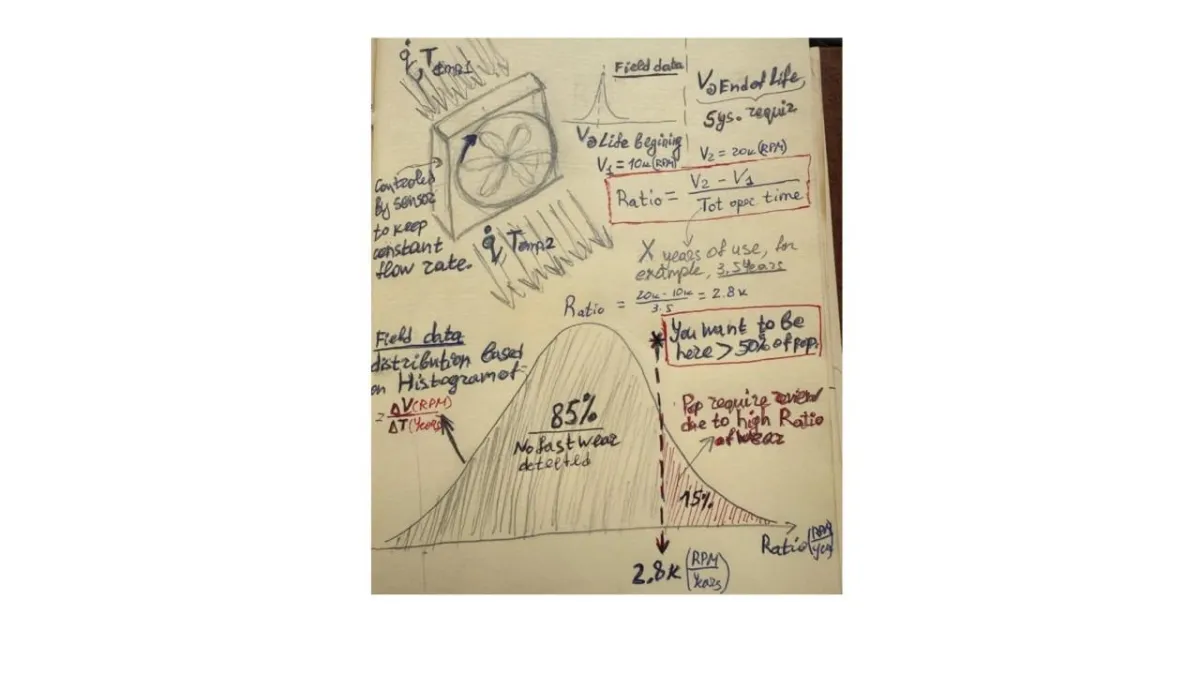 q̇, Temp1
Field data
V@ End of Life
Sys. requir
V@ Life begining
V1 = 10k (RPM)
V2 = 20k (RPM)
Ratio = V2 - V1
Tot oper time
Controled
By sensor
to keep
constant
flow rate.
q̇, Temp2
X years of use, for
example, 3.5 Years
Ratio = 20k - 10k / 3.5 = 2.8k
You want to be
here > 50% of pop.
Field data
distribution Based
on Histogram of
= ΔV(RPM)
ΔT(Years)
85%
No fast wear
detected
Pop require review
due to high Ratio
of wear
15%
Ratio (RPM/Years)
2.8k (RPM/Years)